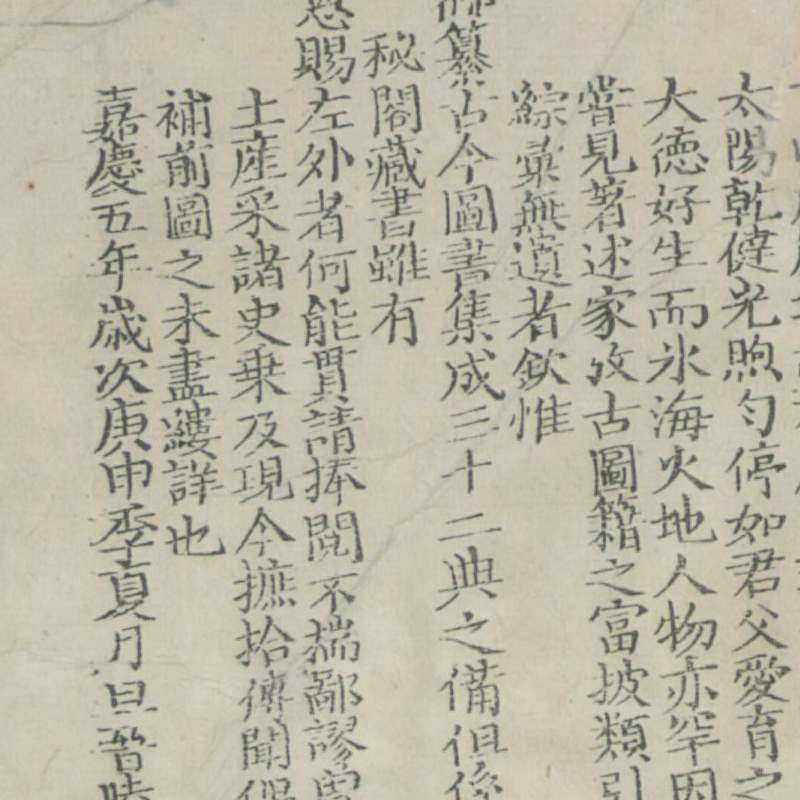 太陽乾健光煦勻停如君父愛育之
大德好生而氷海火地人物亦罕因
嘗見著述家攷古圖籍之富披類引
綜彙無遺者欽惟
纂古今圖書集成三十二典之備但係
秘閣藏書雖有
賜左外者何能貫請捧閱不揣鄙謬
土産采諸史乗及現今摭拾傳聞偶
補前圖之未盡縷詳也
嘉慶五年歲次庚申季夏月旦晉